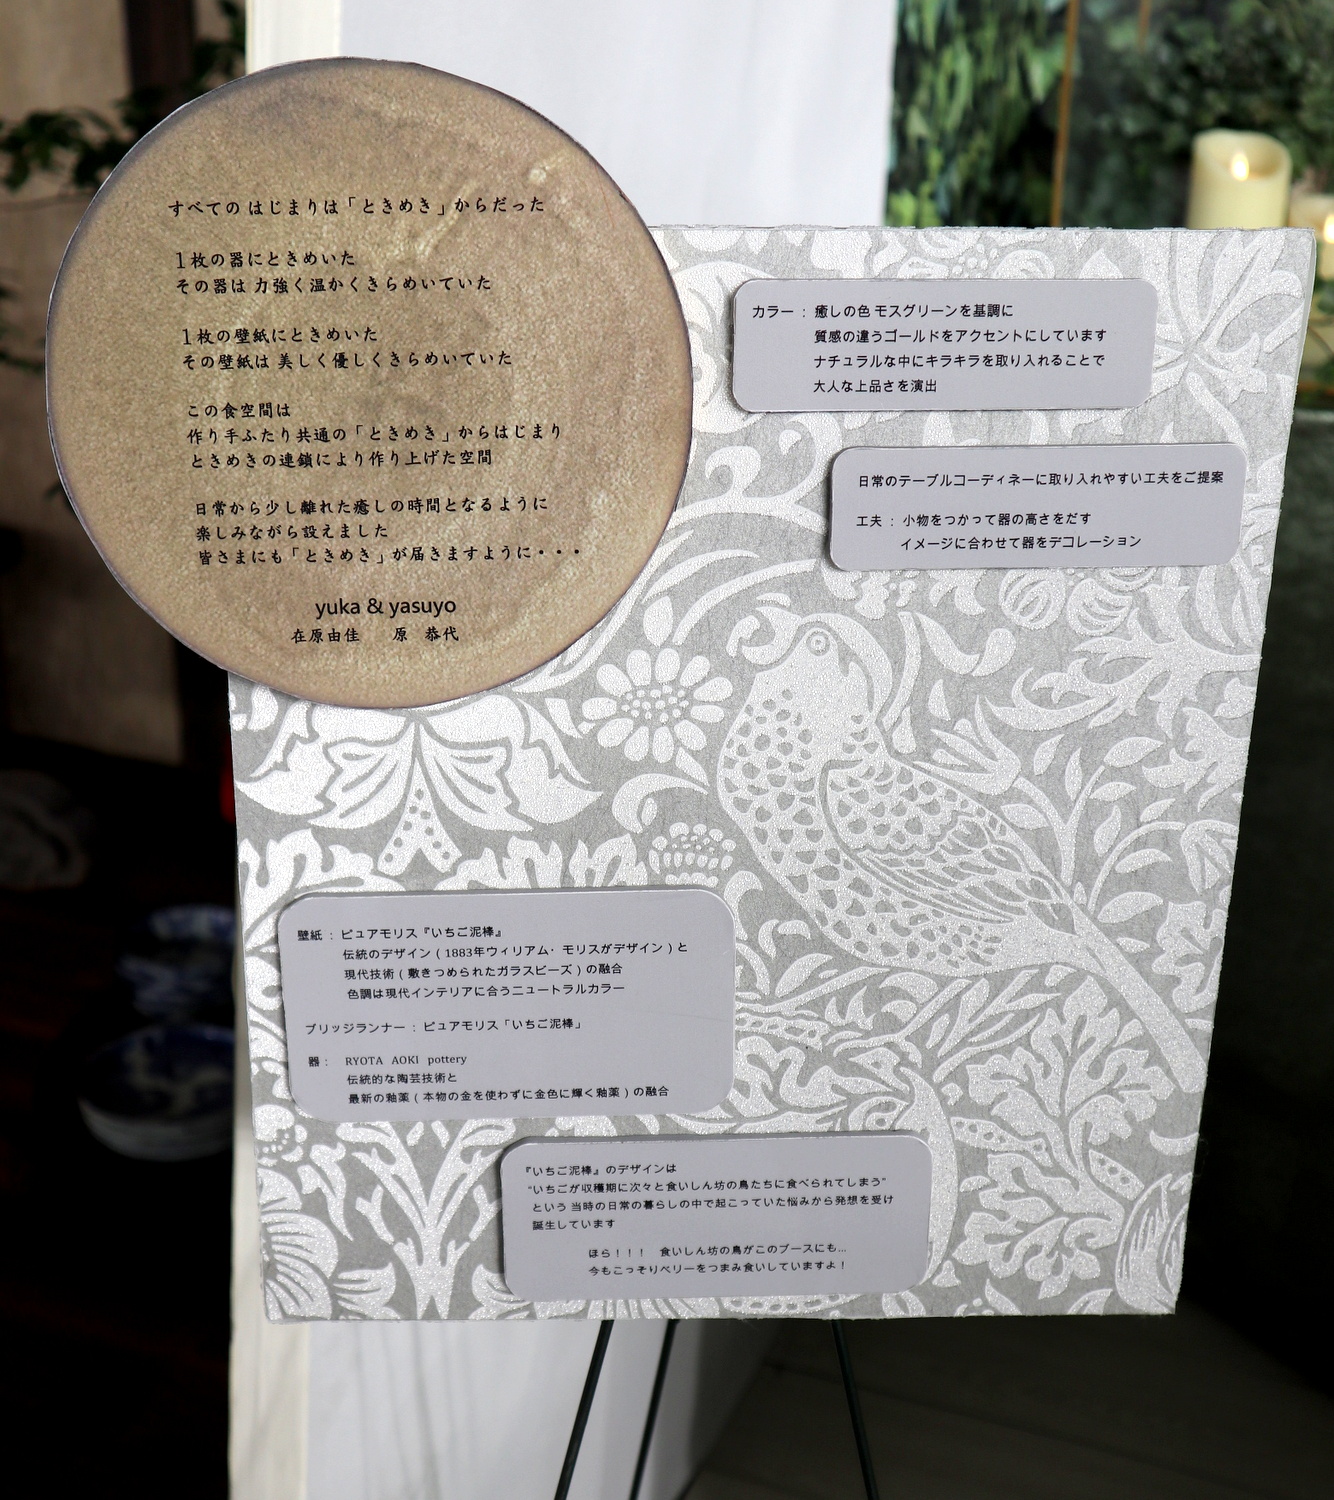 すべての はじまりは「ときめき」からだった
1枚の器にときめいた
その器は 力強く温かくきらめいていた
1枚の壁紙にときめいた
その壁紙は 美しく優しくきらめいていた
この食空間は
作り手ふたり共通の「ときめき」からはじまり
ときめきの連鎖により作り上げた空間
日常から少し離れた癒しの時間となるように
楽しみながら設えました
皆さまにも「ときめき」が届きますように・・・
yuka & yasuyo
在原由佳 原 恭代
カラー : 癒しの色 モスグリーンを基調に
質感の違うゴールドをアクセントにしています
ナチュラルな中にキラキラを取り入れることで
大人な上品さを演出
日常のテーブルコーディネーに取り入れやすい工夫をご提案
工夫 : 小物をつかって器の高さをだす
イメージに合わせて器をデコレーション
壁紙 : ピュアモリス『いちご泥棒』
伝統のデザイン ( 1883年ウィリアム・モリスがデザイン ) と
現代技術 ( 敷きつめられたガラスビーズ ) の融合
色調は現代インテリアに合うニュートラルカラー
ブリッジランナー : ピュアモリス「いちご泥棒」
器 : RYOTA AOKI pottery
伝統的な陶芸技術と
最新の釉薬 ( 本物の金を使わずに金色に輝く釉薬 ) の融合
『いちご泥棒』のデザインは
"いちごが収穫期に次々と食いしん坊の鳥たちに食べられてしまう"
という 当時の日常の暮らしの中で起こっていた悩みから発想を受け
誕生しています
ほら！！！ 食いしん坊の鳥がこのブースにも...
今もこっそりベリーをつまみ食いしていますよ！